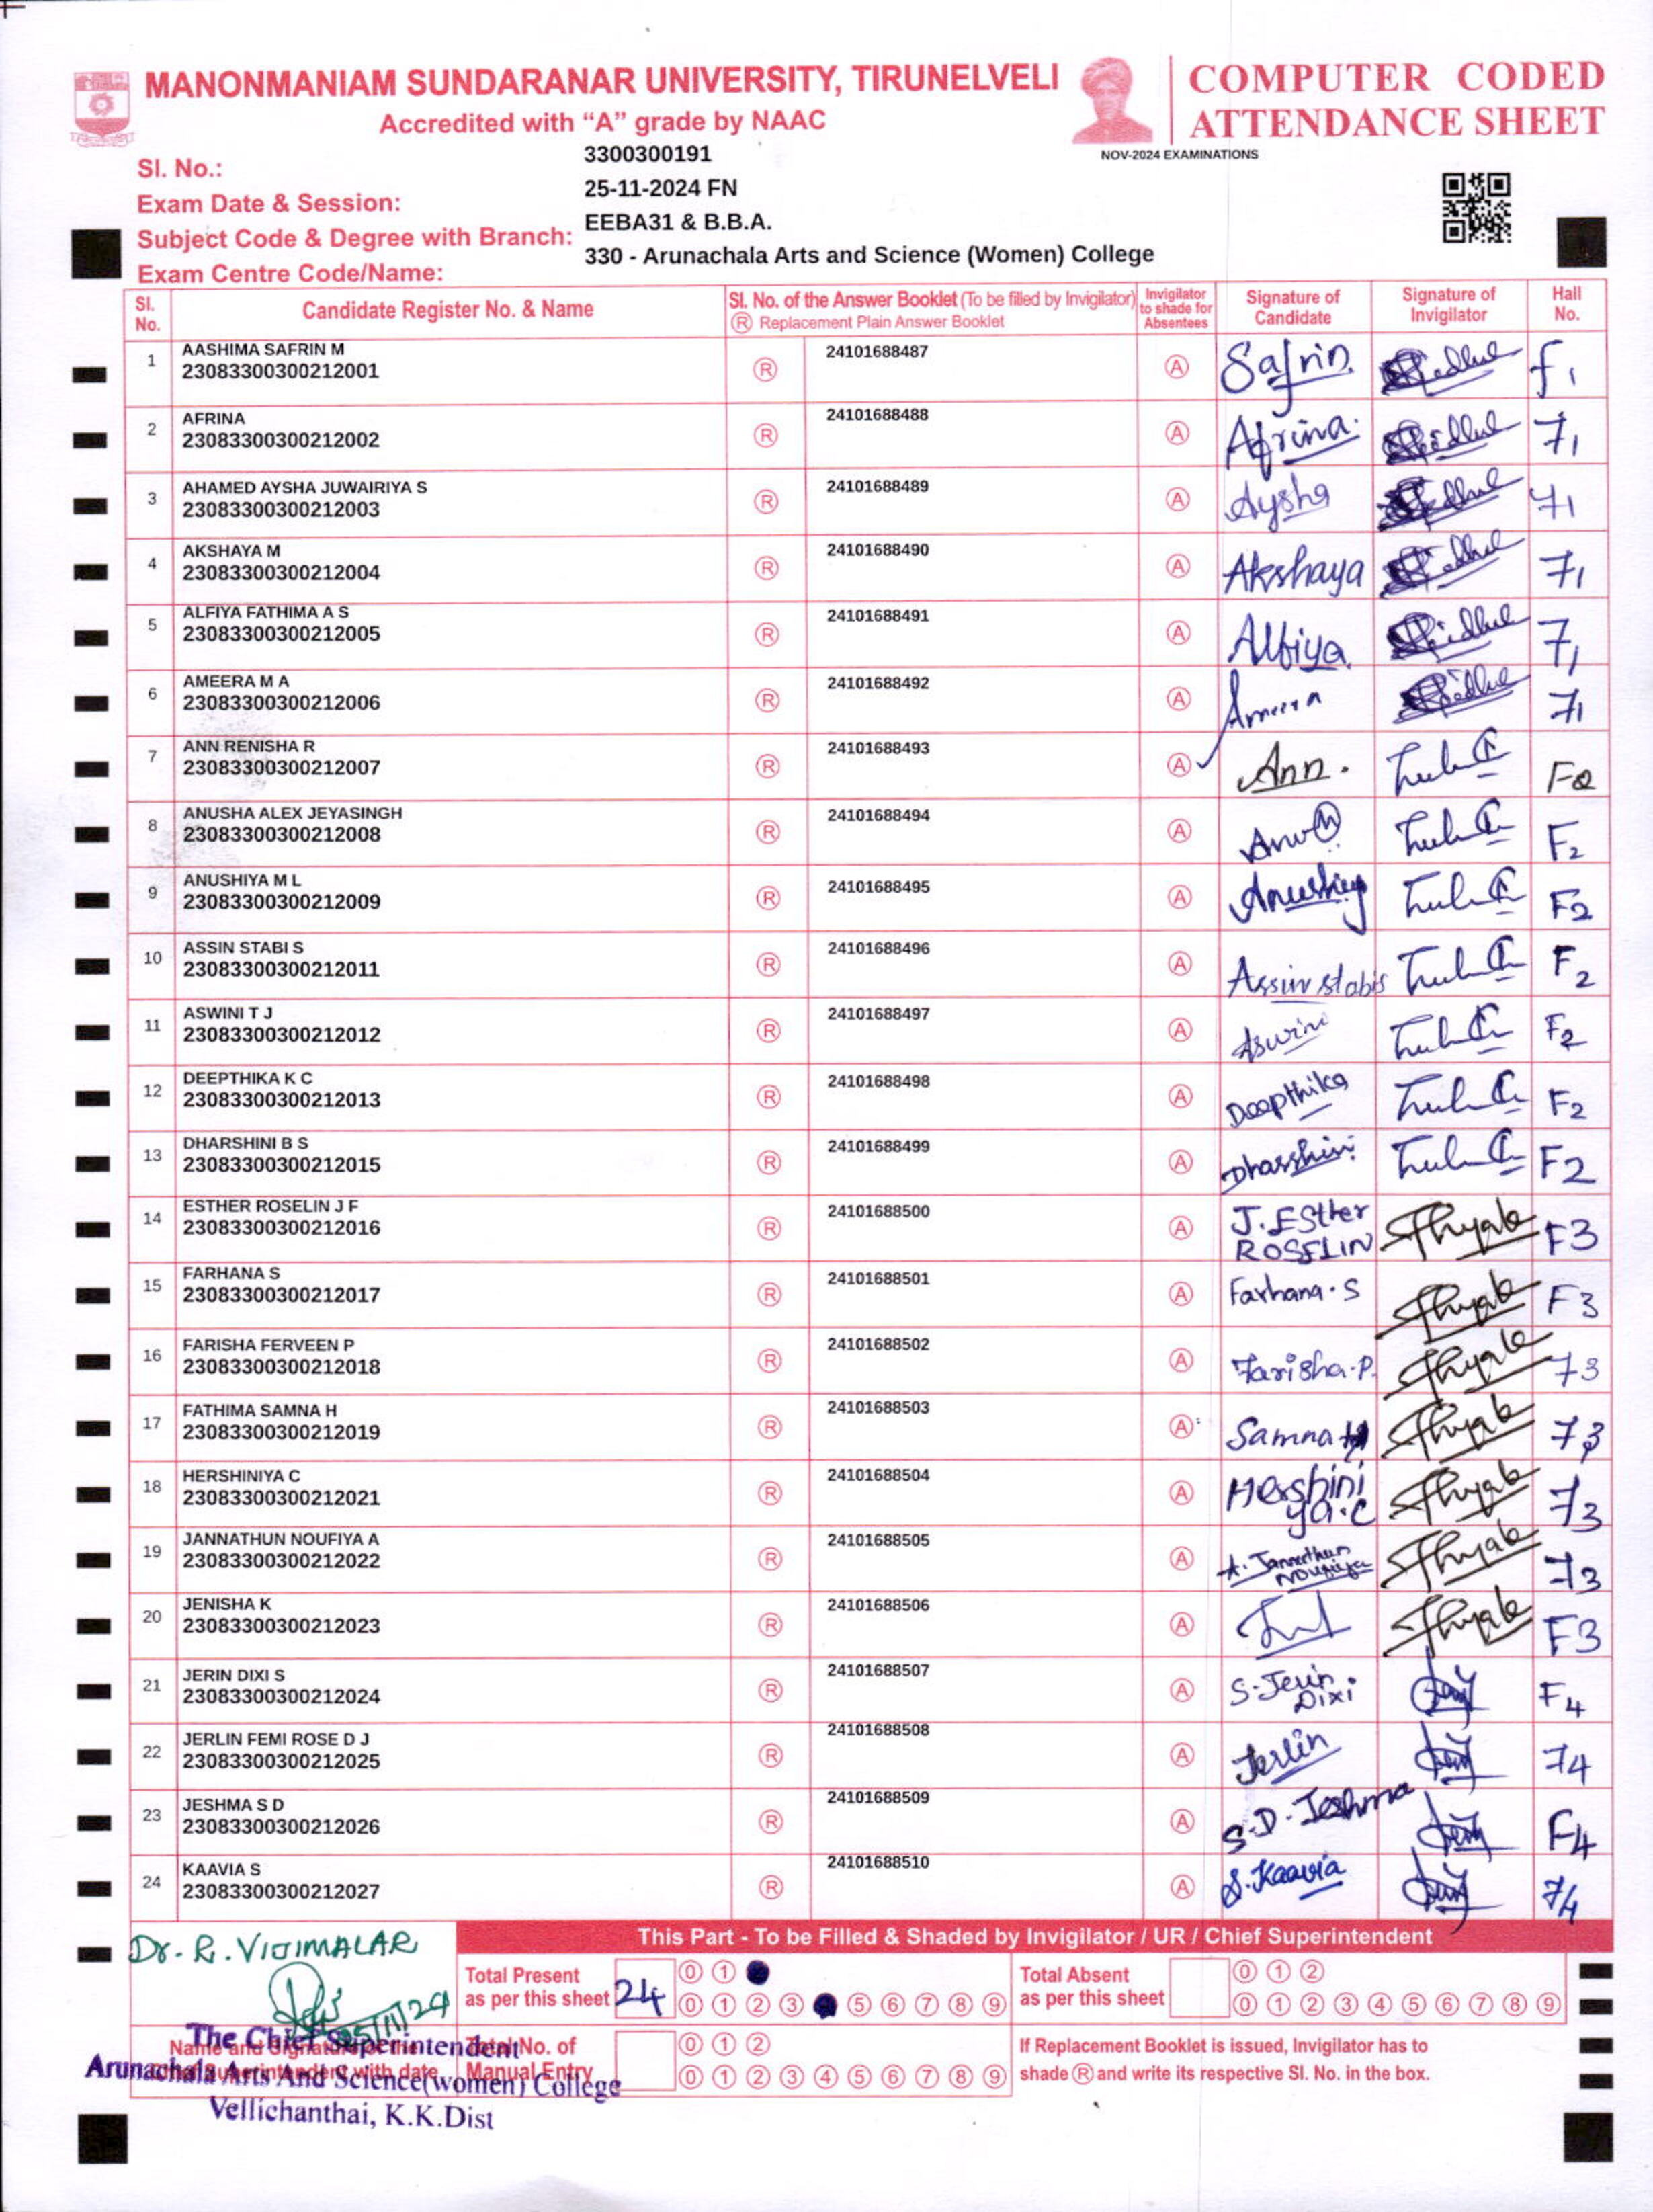 MANONMANIAM SUNDARANAR UNIVERSITY, TIRUNELVELI
Accredited with “A” grade by NAAC
COMPUTER CODED
ATTENDANCE SHEET
NOV-2024 EXAMINATIONS
Sl. No.: 3300300191
Exam Date & Session: 25-11-2024 FN
Subject Code & Degree with Branch: EEBA31 & B.B.A.
Exam Centre Code/Name: 330 - Arunachala Arts and Science (Women) College
Sl. No. Candidate Register No. & Name Sl. No. of the Answer Booklet (To be filled by Invigilator) Ⓡ Replacement Plain Answer Booklet Invigilator to shade for Absentees Signature of Candidate Signature of Invigilator Hall No.
1 AASHIMA SAFRIN M 23083300300212001 Ⓡ 24101688487 Ⓐ Safrin f1
2 AFRINA 23083300300212002 Ⓡ 24101688488 Ⓐ Afrina. F1
3 AHAMED AYSHA JUWAIRIYA S 23083300300212003 Ⓡ 24101688489 Ⓐ Aysha F1
4 AKSHAYA M 23083300300212004 Ⓡ 24101688490 Ⓐ Akshaya F1
5 ALFIYA FATHIMA A S 23083300300212005 Ⓡ 24101688491 Ⓐ Alfiya F1
6 AMEERA M A 23083300300212006 Ⓡ 24101688492 Ⓐ Ameera F1
7 ANN RENISHA R 23083300300212007 Ⓡ 24101688493 Ⓐ Ann. F2
8 ANUSHA ALEX JEYASINGH 23083300300212008 Ⓡ 24101688494 Ⓐ F2
9 ANUSHIYA M L 23083300300212009 Ⓡ 24101688495 Ⓐ Anushiya F2
10 ASSIN STABI S 23083300300212011 Ⓡ 24101688496 Ⓐ Assin stabi s F2
11 ASWINI T J 23083300300212012 Ⓡ 24101688497 Ⓐ Aswini F2
12 DEEPTHIKA K C 23083300300212013 Ⓡ 24101688498 Ⓐ Deepthika F2
13 DHARSHINI B S 23083300300212015 Ⓡ 24101688499 Ⓐ Dharshini F2
14 ESTHER ROSELIN J F 23083300300212016 Ⓡ 24101688500 Ⓐ J. Esther ROSELIN F3
15 FARHANA S 23083300300212017 Ⓡ 24101688501 Ⓐ Farhana.S F3
16 FARISHA FERVEEN P 23083300300212018 Ⓡ 24101688502 Ⓐ Farisha.P. F3
17 FATHIMA SAMNA H 23083300300212019 Ⓡ 24101688503 Ⓐ Samna H F3
18 HERSHINIYA C 23083300300212021 Ⓡ 24101688504 Ⓐ Hershini ya.C F3
19 JANNATHUN NOUFIYA A 23083300300212022 Ⓡ 24101688505 Ⓐ A. Jannathun Noufiya F3
20 JENISHA K 23083300300212023 Ⓡ 24101688506 Ⓐ F3
21 JERIN DIXI S 23083300300212024 Ⓡ 24101688507 Ⓐ S. Jerin Dixi F4
22 JERLIN FEMI ROSE D J 23083300300212025 Ⓡ 24101688508 Ⓐ Jerlin F4
23 JESHMA S D 23083300300212026 Ⓡ 24101688509 Ⓐ S.D. Jeshma F4
24 KAAVIA S 23083300300212027 Ⓡ 24101688510 Ⓐ S. Kaavia F4
Dr. R. VIJIMALAR
25/11/24
The Chief Superintendent
Arunachala Arts And Science(women) College
Vellichanthai, K.K.Dist
This Part - To be Filled & Shaded by Invigilator / UR / Chief Superintendent
Total Present as per this sheet 24
0 1
0 1 2 3 5 6 7 8 9
Total Absent as per this sheet
0 1 2
0 1 2 3 4 5 6 7 8 9
Total No. of Manual Entry
0 1 2
0 1 2 3 4 5 6 7 8 9
If Replacement Booklet is issued, Invigilator has to
shade Ⓡ and write its respective Sl. No. in the box.